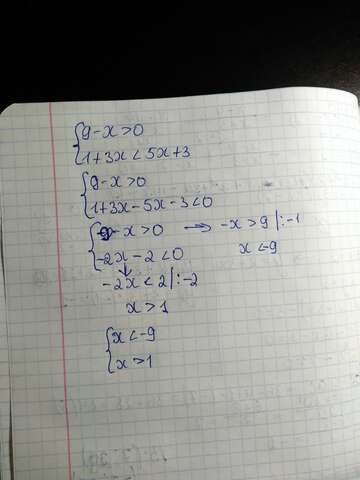 {9-x>0
1+3x<5x+3
{9-x>0
1+3x-5x-3<0
{9-x>0 → -x>9 |:-1
-2x-2<0 x<-9
↓
-2x<2|:-2
x>1
{x<-9
x>1